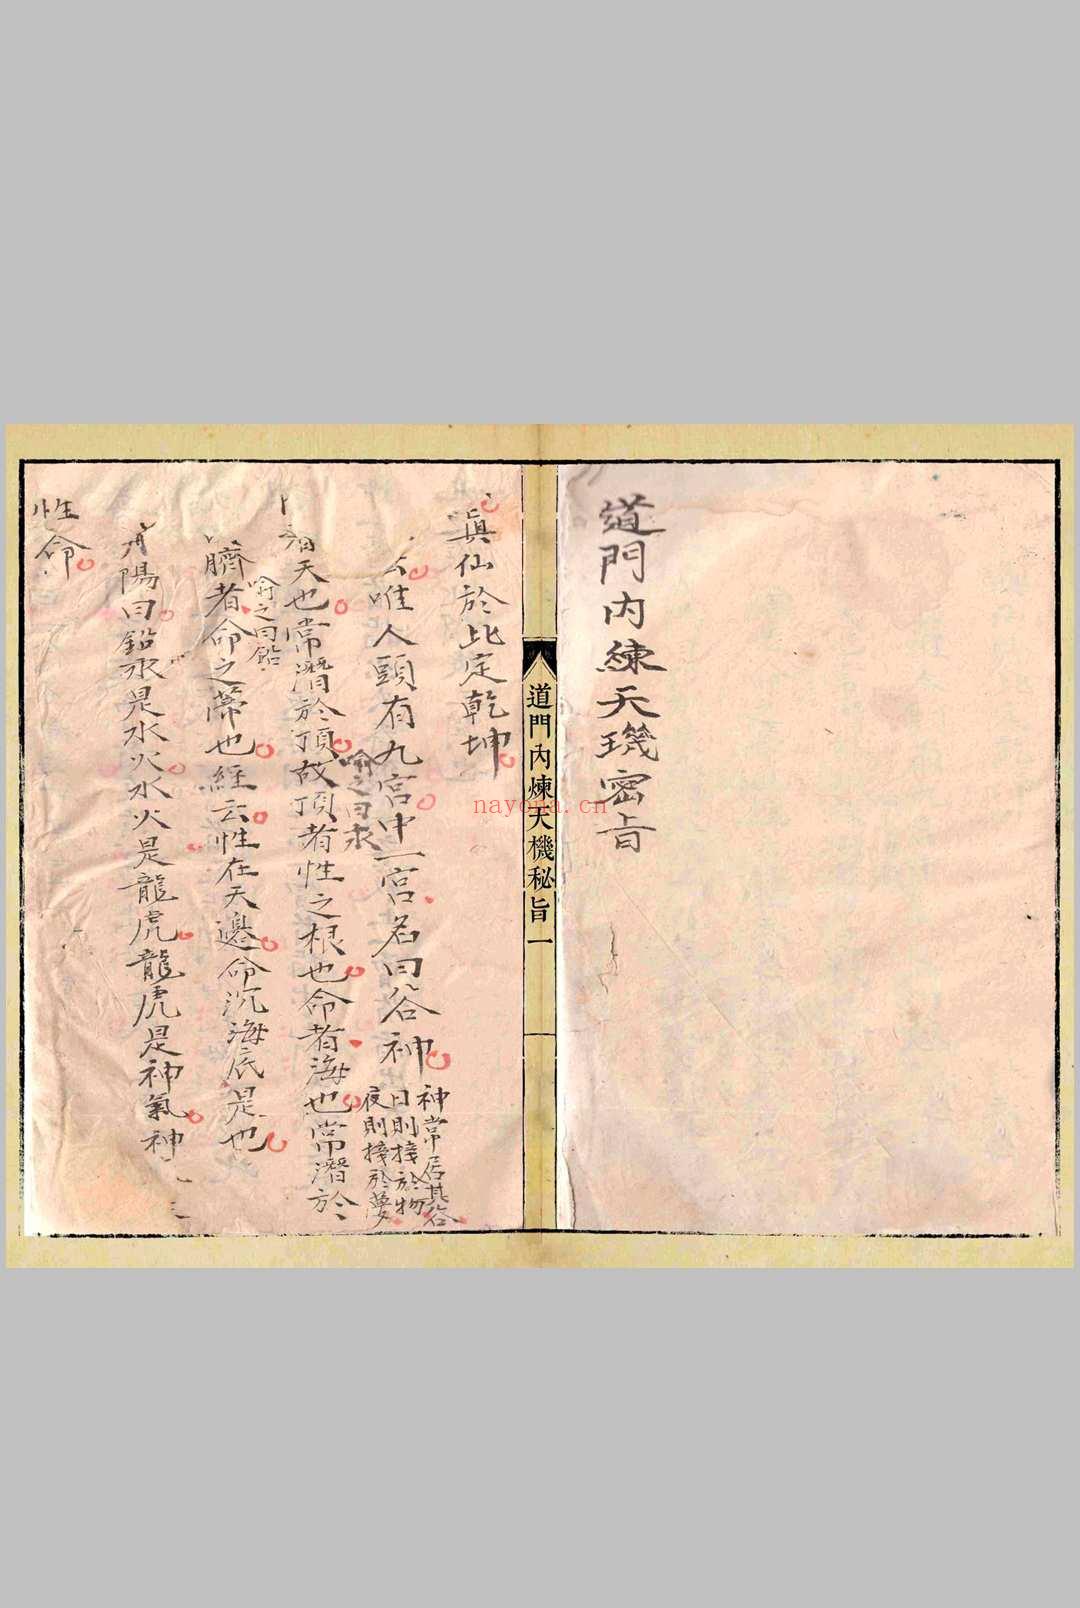 道門内練天璣密旨
道門內煉天機秘旨一
真仙於此定乾坤
唯人頭有九宮中一宮名曰谷神
神常居其谷
日則接於物
夜則接於夢
喻之曰汞
天也常潛於頂故頂者性之根也命者海也常潛於
喻之曰鉛
臍者命之蒂也經云性在天邊命沉海底是也
陽曰鉛汞是水火水火是龍虎龍虎是神氣神
性命
nayona.cn